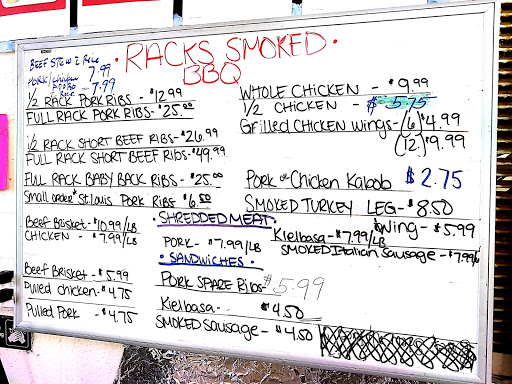 BEEF STEW & Rice
7.99
PORK/chicken
- 7.99
• RACKS SMOKED •
BBQ
1/2 RACK PORK RIBS - $12.99
FULL RACK PORK RIBS - $25.00
1/2 RACK SHORT BEEF RIBS - $26.99
FULL RACK SHORT BEEF RIBS - $49.99
FULL RACK BABY BACK RIBS - $25.00
Small order St. Louis PORK RIBS $6.50
WHOLE CHICKEN - $9.99
1/2 CHICKEN - $5.75
Grilled CHICKEN wings - (6) $4.99
(12) $9.99
PORK or Chicken Kabob $2.75
SMOKED TURKEY LEG - $8.50
Wing - $5.99
• SHREDDED MEAT •
Beef Brisket - $10.99/LB
CHICKEN - $7.99/LB
PORK - $7.99/LB
Kielbasa - $7.99/LB
SMOKED Italian Sausage - $7.99/
• SANDWICHES •
Beef Brisket - $5.99
Pulled chicken - $4.75
Pulled Pork - $4.75
PORK SPARE Ribs - $5.99
Kielbasa - $4.50
SMOKED Sausage - $4.50